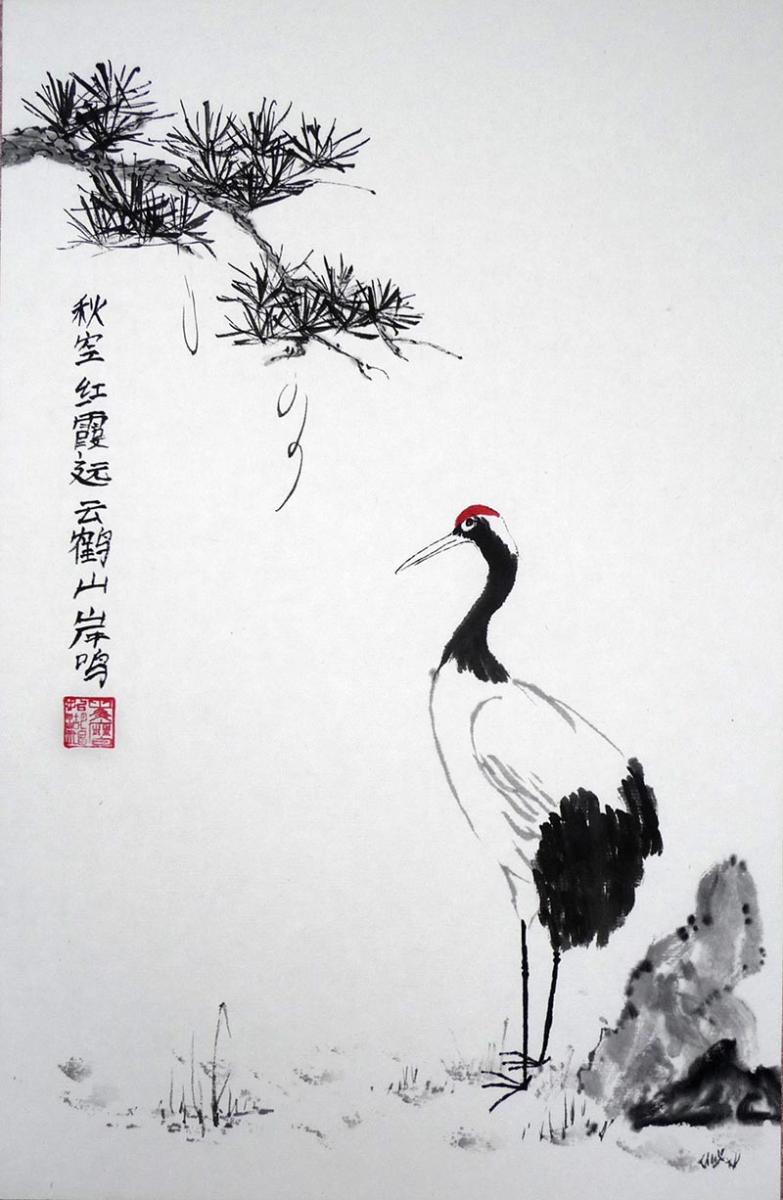 秋空红霞远云鹤山岸鸣